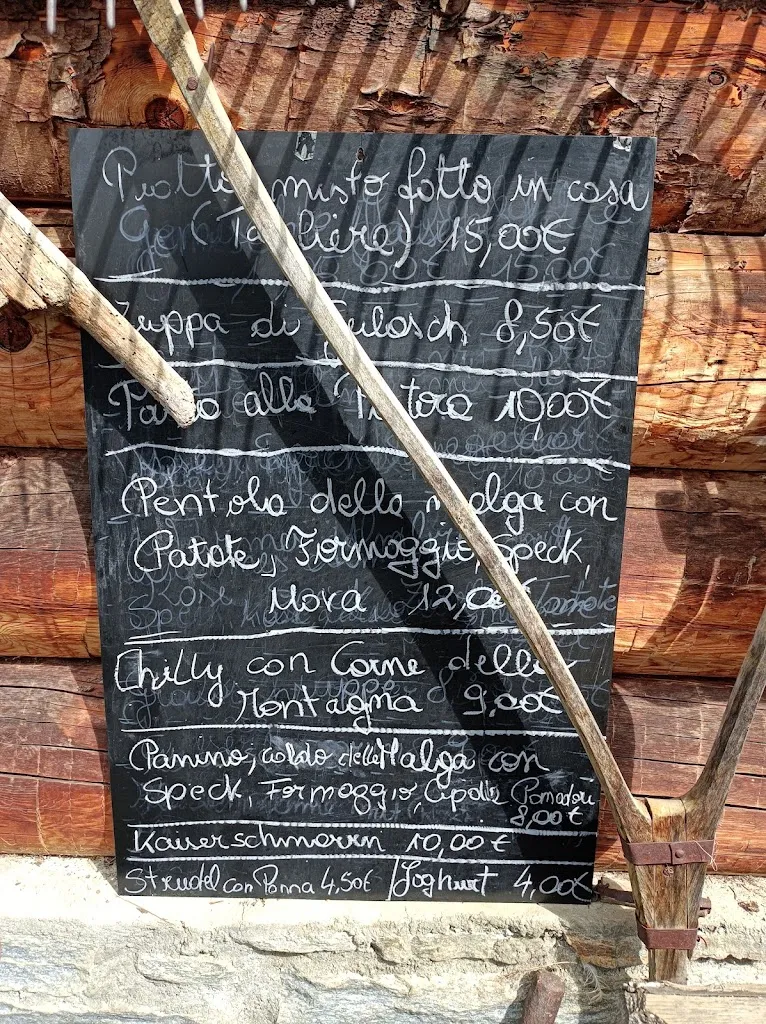 Piatto misto fatto in casa
(Tagliere) 15,00€
Zuppa di Gulasch 8,50€
Pasta alla 10,00€
Pentola della malga con
Patate, Formaggio, Speck,
Uova 12,00€
Chilly con Carne della
Montagna 9,00€
Panino, caldo della Malga con
Speck, Formaggio, Cipolla Pomodori
8,00€
Kaiserschmarrn 10,00€
Strudel con Panna 4,50€ / Joghurt 4,00€